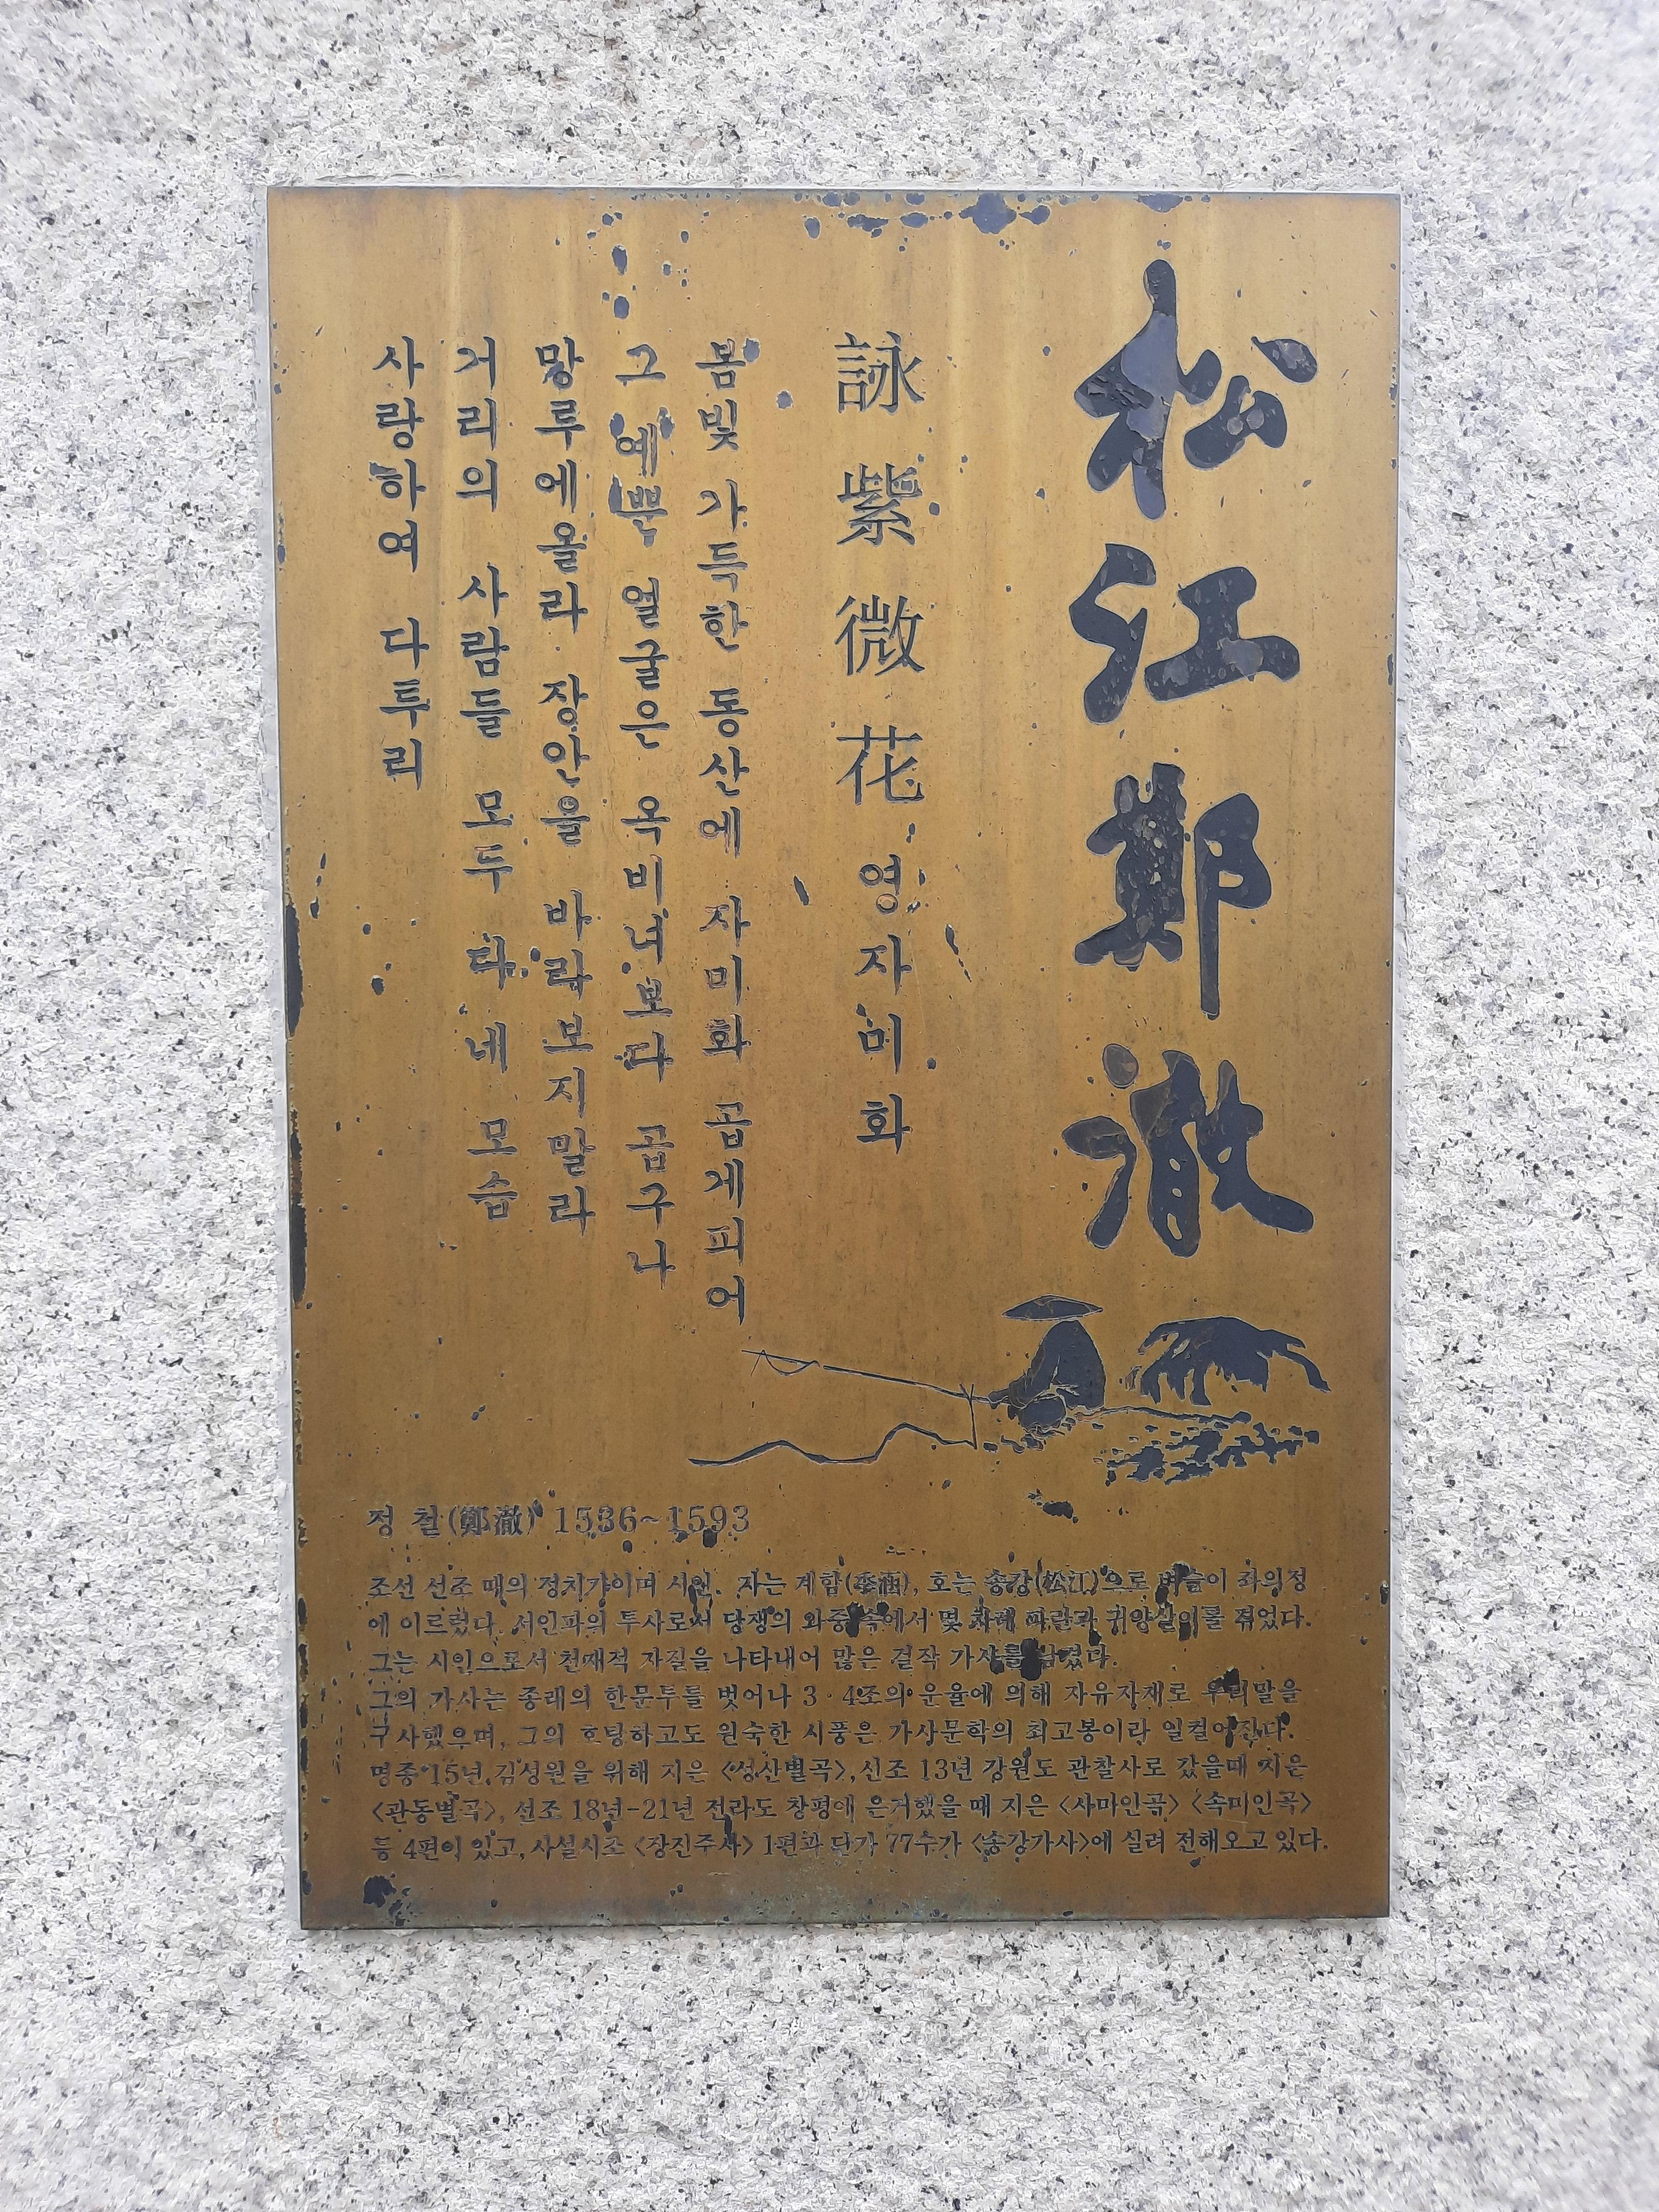 松江鄭澈
詠紫微花 영자미화
봄빛 가득한 동산에 자미화 곱게피어
그 예쁜 얼굴은 옥비녀보다 곱구나
망루에올라 장안을 바라보지말라
거리의 사람들 모두 다 네 모습
사랑하여 다투리
정 철(鄭澈) 1536~1593
조선 선조 때의 정치가이며 시인. 자는 계함(季涵), 호는 송강(松江)으로 벼슬이 좌의정
에 이르렀다. 서인파의 투사로서 당쟁의 와중 속에서 몇 차례 파란과 귀양살이를 겪었다.
그는 시인으로서 천재적 자질을 나타내어 많은 걸작 가사를 남겼다.
그의 가사는 종래의 한문투를 벗어나 3·4조의 운율에 의해 자유자재로 우리말을
구사했으며, 그의 호탕하고도 원숙한 시풍은 가사문학의 최고봉이라 일컬어진다.
명종 15년, 김성원을 위해 지은 〈성산별곡〉, 선조 13년 강원도 관찰사로 갔을때 지은
〈관동별곡〉, 선조 18년-21년 전라도 창평에 은거했을 때 지은 〈사마인곡〉 〈속미인곡〉
등 4편이 있고, 사설시조 〈장진주사〉 1편과 단가 77수가 〈송강가사〉에 실려 전해오고 있다.